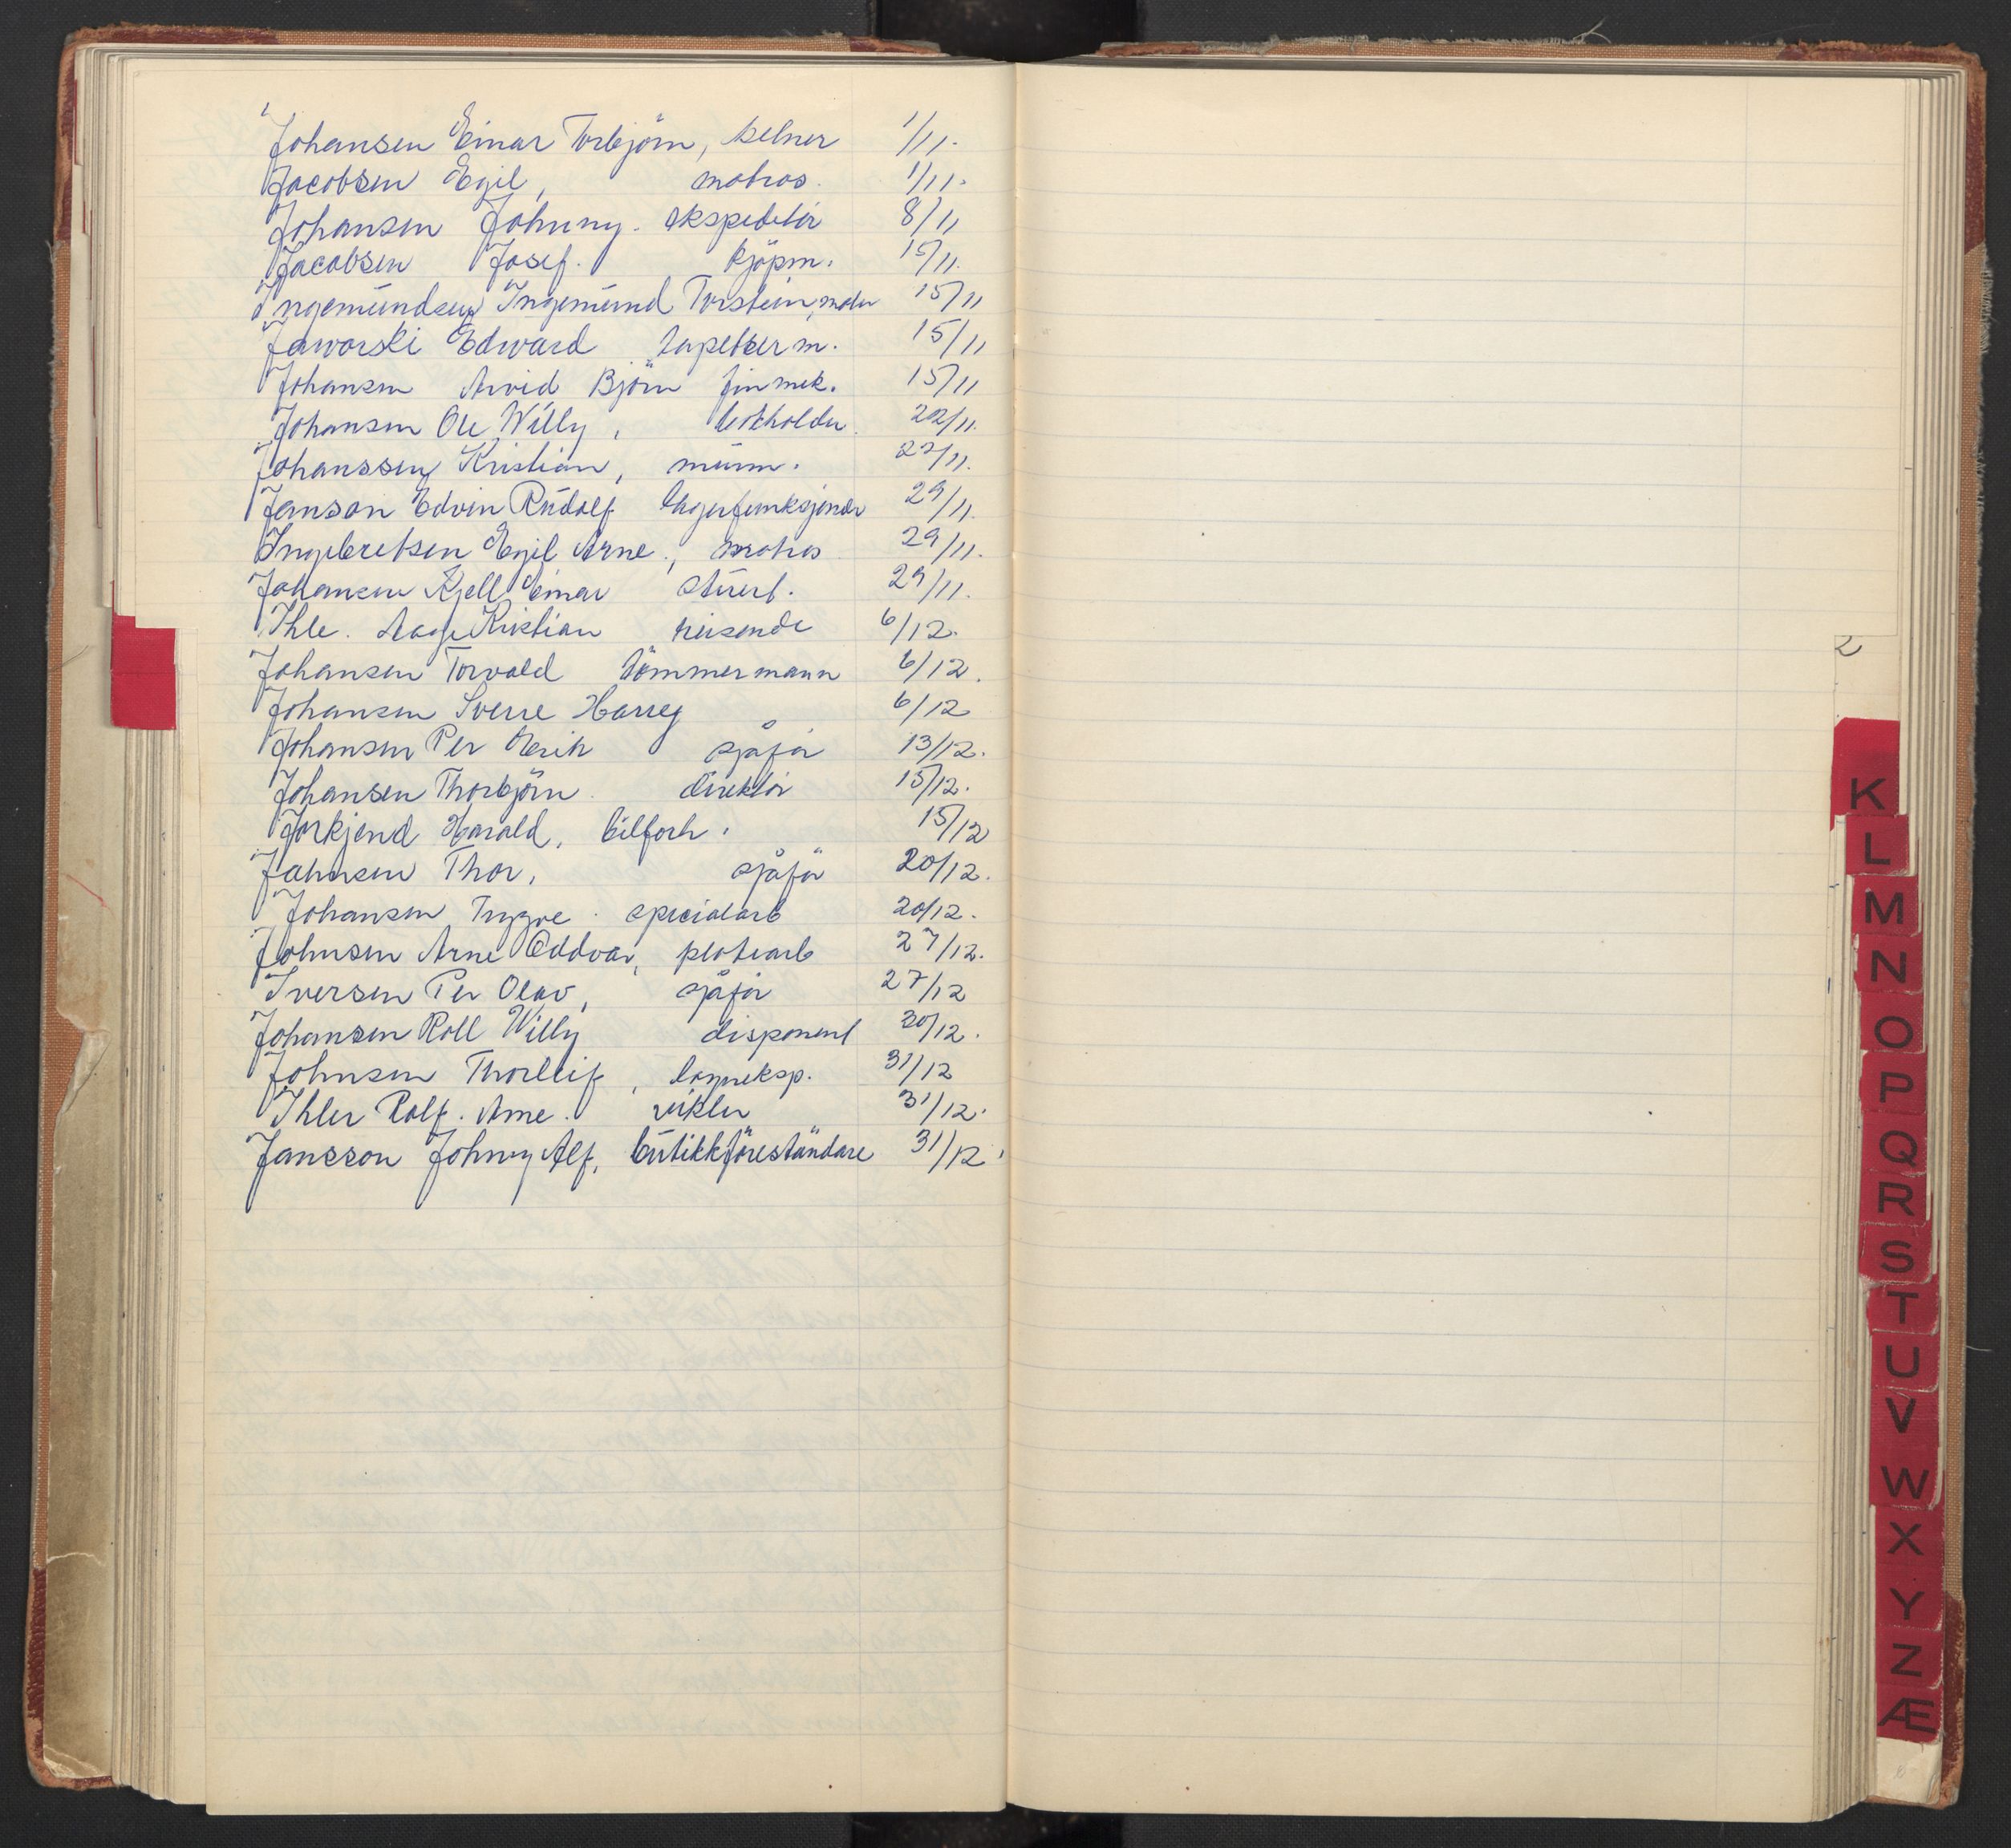 Johansen Einar Torbjörn, kelner 1/11.
Jacobsen Egil, matros. 1/11.
Johansen Johnny. ekspeditör 8/11
Jacobsen Josef. kjöpm. 15/11.
Ingemundsen Ingemund Torstein, maler 15/11
Jaworski Edward tapetserm. 15/11
Johansen Arvid Björn finmek. 15/11
Johansen Ole Willy, bokholder. 22/11.
Johanssen Kristian, murm. 22/11.
Janson Edvin Rudolf lagerfunksjonær 29/11.
Ingebretsen Egil Arne, matros 29/11.
Johansen Kjell Einar stuert. 29/11.
Ihle. Aage Kristian reisende 6/12.
Johansen Torvald tömmermann 6/12.
Johansen Sverre Harry 6/12
Johansen Per Erik sjåför 13/12.
Johansen Thorbjörn. direktör 15/12.
Jorkjend Harald, bilforh. 15/12
Jahnsen Thor, sjåför 20/12.
Johansen Trygve. spesialarb 20/12.
Johnsen Arne Oddvar, platearb 27/12.
Iversen Per Olav, sjåför 27/12
Johansen Roll Willy disponent 30/12.
Johnsen Thorleif, 31/12
Ihler Rolf. Arne. vikler 31/12.
Jansson Johnny Alf, butikkföreståndare 31/12.
2
K
L
M
N
O
P
Q
R
S
T
U
V
W
X
Y
Z
Æ